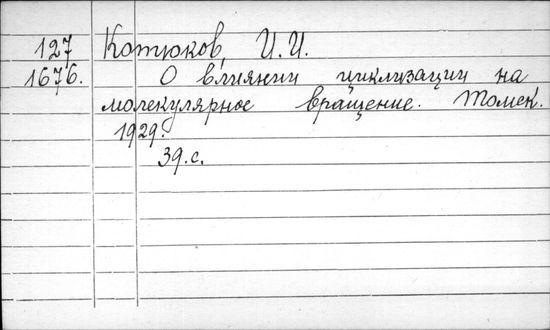 127 Котюков, И.И.
1676. О влиянии циклизации на
молекулярное вращение. Томск.
1929.
39.с.